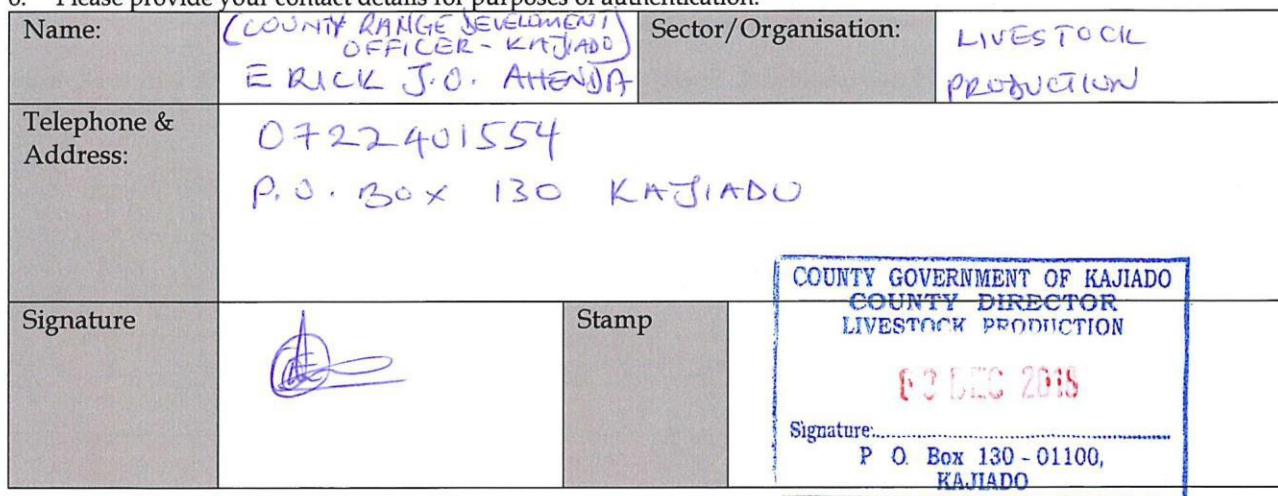 Please provide your contact details for purposes of authentication.
Name:
(COUNTY RANGE DEVELOPMENT
OFFICER - KAJIADO)
ERICK J.O. AHENDA
Sector/Organisation:
LIVESTOCK
PRODUCTION
Telephone &
Address:
0722401554
P.O. BOX 130 KAJIADO
Signature
Stamp
COUNTY GOVERNMENT OF KAJIADO
COUNTY DIRECTOR
LIVESTOCK PRODUCTION
DEC
Signature:
P O. Box 130 - 01100,
KAJIADO